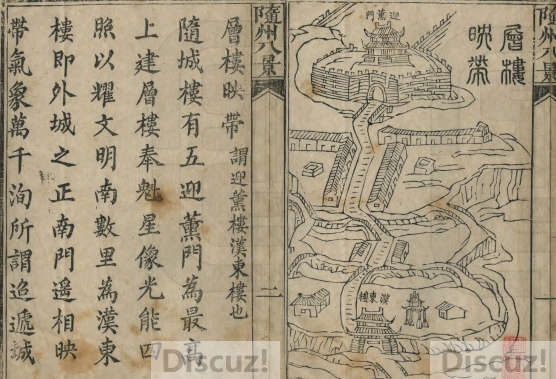 隨州八景
層樓映帶
迎薰門
漢東樓
隨州八景
二
層樓映帶 謂迎薰樓漢東樓也
隨城樓有五迎薰門為最高
上建層樓奉魁星像光能四
照以耀文明南數里為漢東
樓即外城之正南門遙相映
帶氣象萬千洵所謂迢遞城
Discuz!
Discuz!